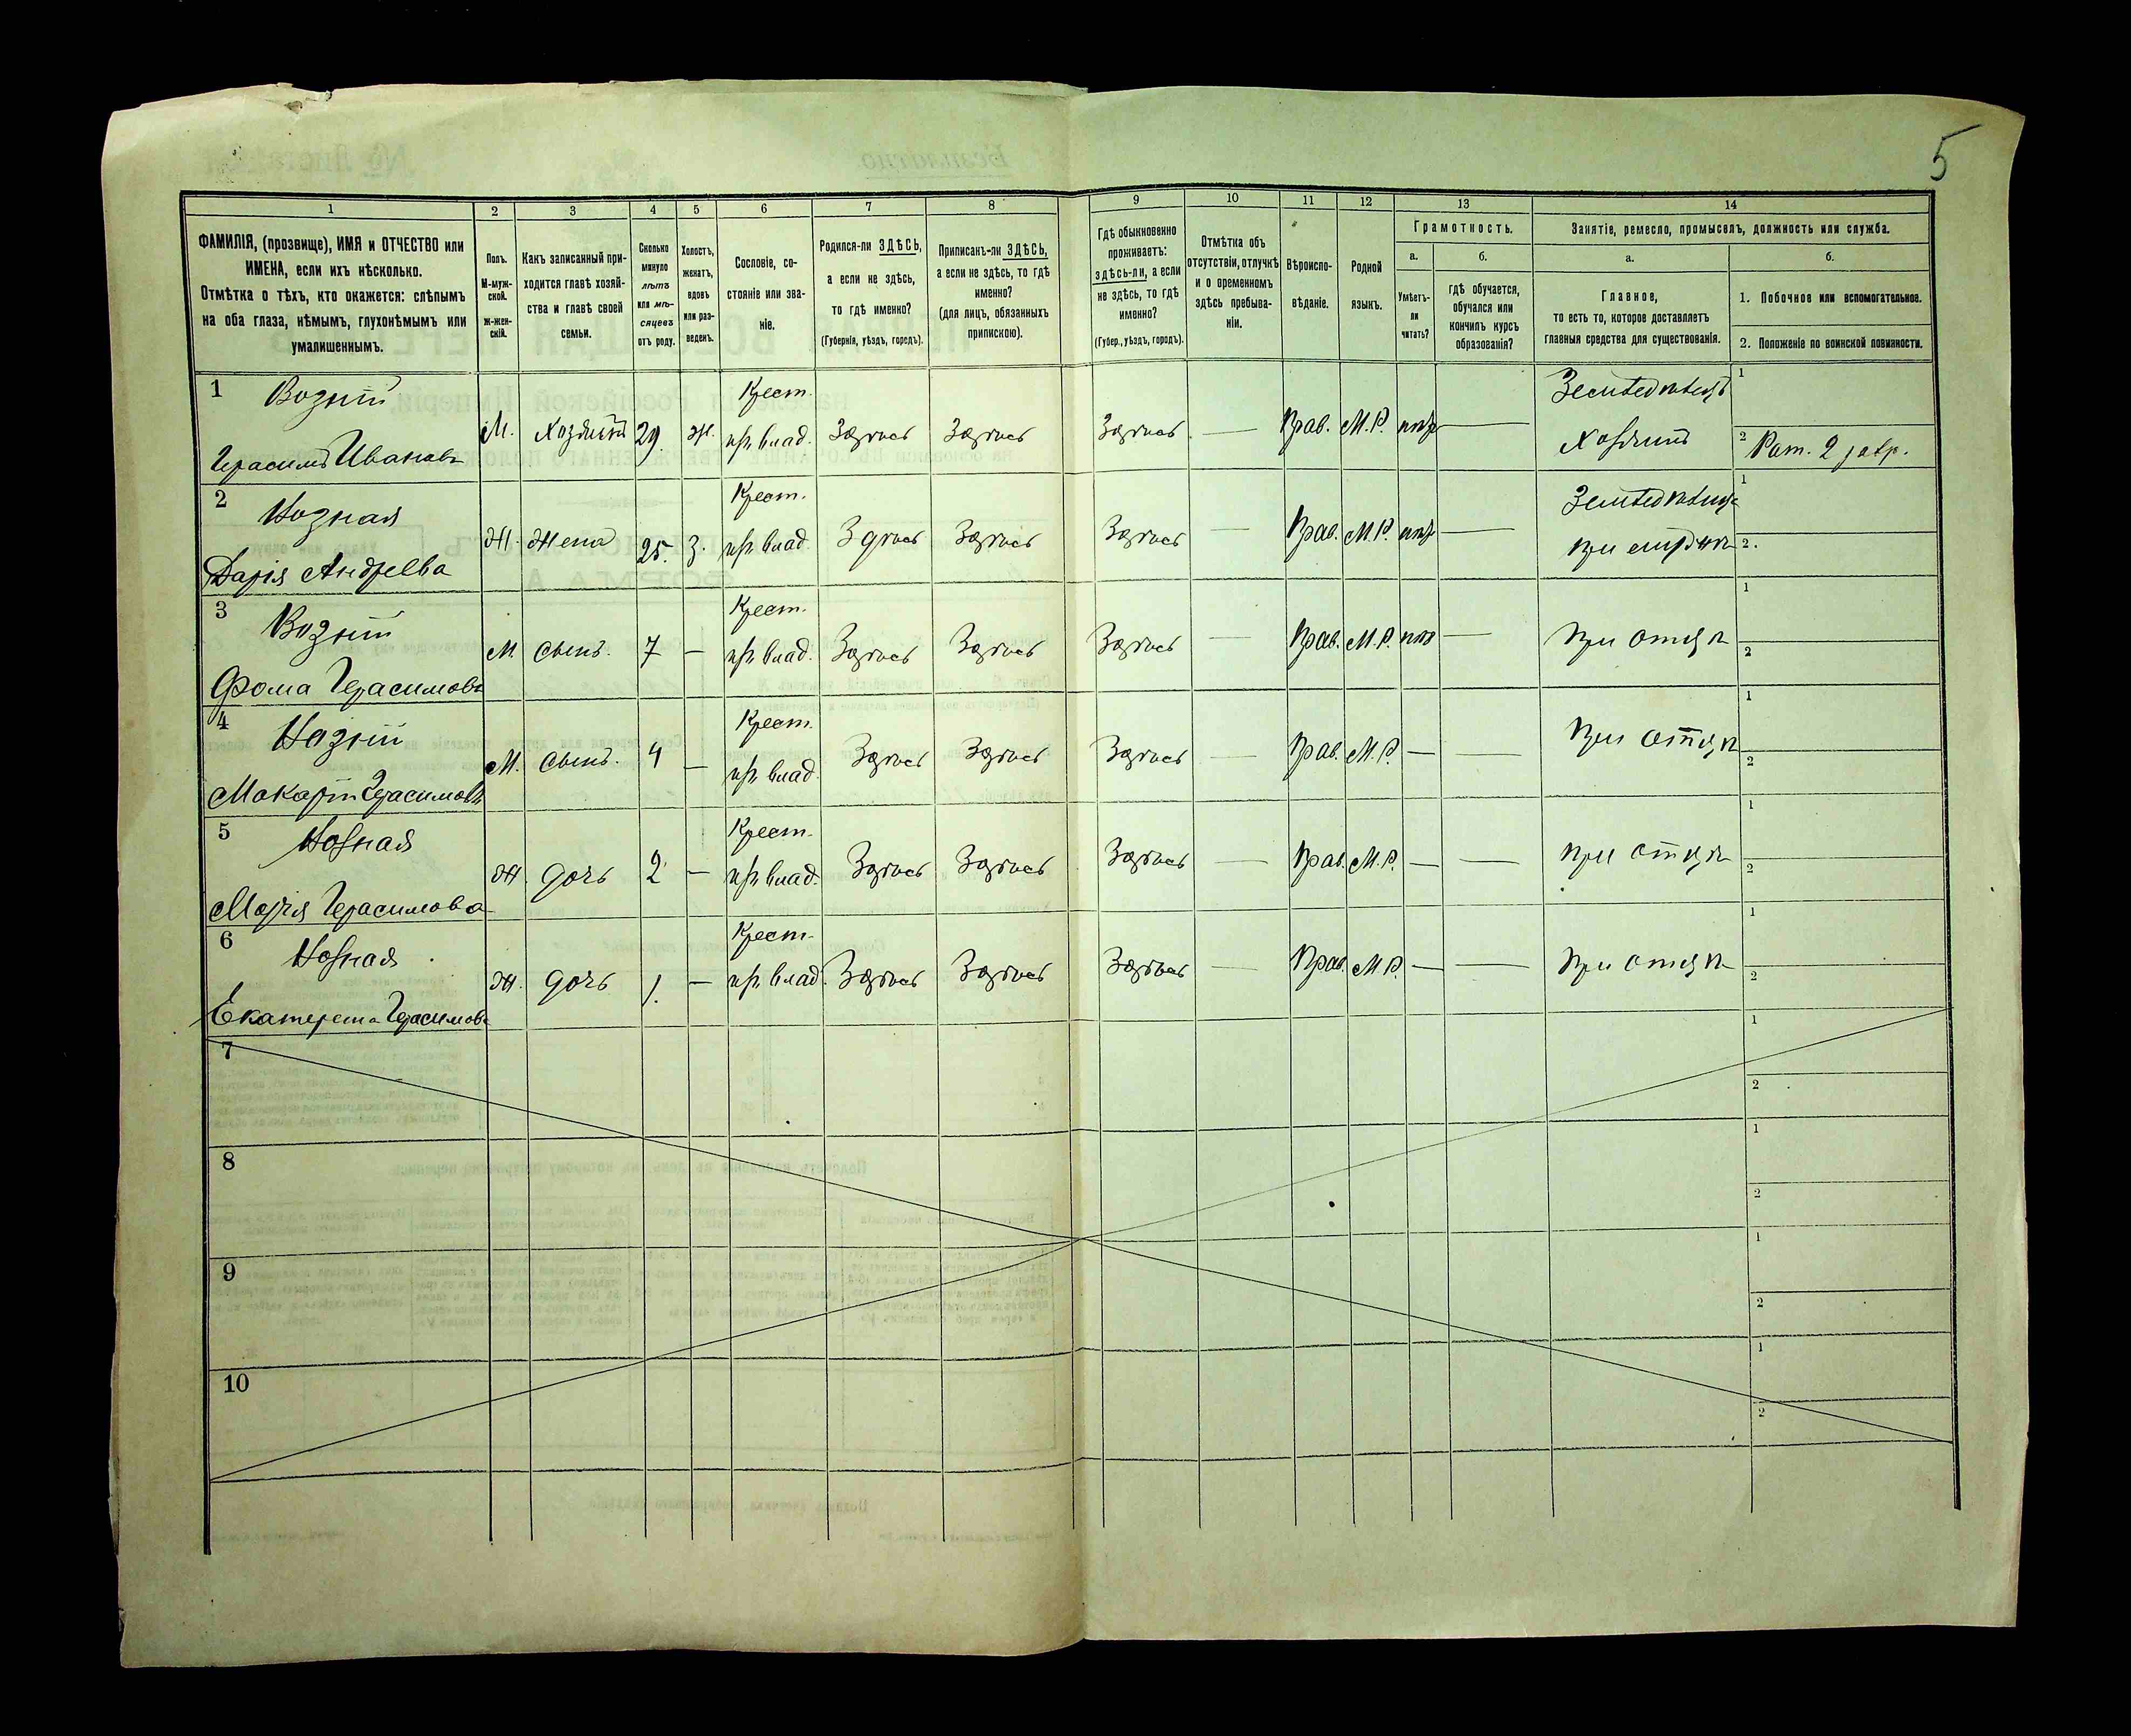 5
1 2 3 4 5 6 7 8 9 10 11 12 13 14
ФАМИЛІЯ, (прозвище), ИМЯ и ОТЧЕСТВО или
ИМЕНА, если ихъ нѣсколько.
Отмѣтка о тѣхъ, кто окажется: слѣпымъ
на оба глаза, нѣмымъ, глухонѣмымъ или
умалишеннымъ.
Полъ.
М-муж-
ской.
ж-жен-
скій.
Какъ записанный при-
ходится главѣ хозяй-
ства и главѣ своей
семьи.
Сколько
минуло
лѣтъ
или мѣ-
сяцевъ
отъ роду.
Холостъ,
женатъ,
вдовъ
или раз-
веденъ.
Сословіе, со-
стояніе или зва-
ніе.
Родился-ли ЗДѢСЬ,
а если не здѣсь,
то гдѣ именно?
(Губернія, уѣздъ, городъ).
Приписанъ-ли ЗДѢСЬ,
а если не здѣсь, то гдѣ
именно?
(для лицъ, обязанныхъ
припискою).
Гдѣ обыкновенно
проживаетъ:
здѣсь-ли, а если
не здѣсь, то гдѣ
именно?
(Губер., уѣздъ, городъ).
Отмѣтка объ
отсутствіи, отлучкѣ
и о временномъ
здѣсь пребыва-
ніи.
Вѣроиспо-
вѣданіе.
Родной
языкъ.
Грамотность.
а.
Умѣетъ-
ли
читать?
б.
гдѣ обучается,
обучался или
кончилъ курсъ
образованія?
Занятіе, ремесло, промыселъ, должность или служба.
а.
Главное,
то есть то, которое доставляетъ
главныя средства для существованія.
б.
1. Побочное или вспомогательное.
2. Положеніе по воинской повинности.
1 Возній Крест. Земледѣлецъ 1
Герасимъ Ивановъ М. Хозяинъ 29 ж. кр. влад. Здѣсь Здѣсь Здѣсь — Прав. М.Р. нѣт — Хозяинъ 2 Рат. 2 разр.
2 Возная Крест. Земледѣлица 1
Дарія Андреева Ж. Жена 25. З. кр. влад. Здѣсь Здѣсь Здѣсь — Прав. М.Р. нѣт — при 2.
3 Возній Крест. 1
Фома Герасимовъ М. сынъ. 7 — кр. влад. Здѣсь Здѣсь Здѣсь — Прав. М.Р. нѣт — при отцѣ 2
4 Возній Крест. 1
Макарій Герасимовъ М. сынъ. 4 — кр. влад. Здѣсь Здѣсь Здѣсь — Прав. М.Р. — — При отцѣ 2
5 Возная Крест. 1
Марія Герасимова Ж. дочь 2 — кр. влад. Здѣсь Здѣсь Здѣсь — Прав. М.Р. — — при отцѣ 2
6 Возная Крест. 1
Екатерина Герасимова Ж. дочь 1. — кр. влад. Здѣсь Здѣсь Здѣсь — Прав. М.Р. — — при отцѣ 2
7 1
2
8 1
2
9 1
2
10 1
2